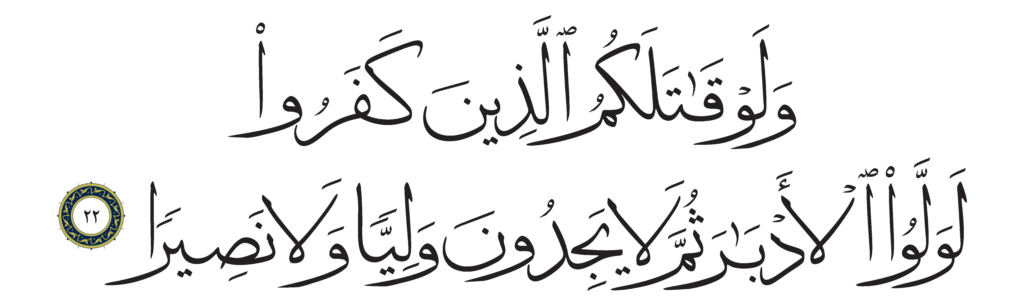 وَلَوْ قَٰتَلَكُمُ ٱلَّذِينَ كَفَرُوا۟
لَوَلَّوُا۟ ٱلْأَدْبَٰرَ ثُمَّ لَا يَجِدُونَ وَلِيًّا وَلَا نَصِيرًا ٢٢